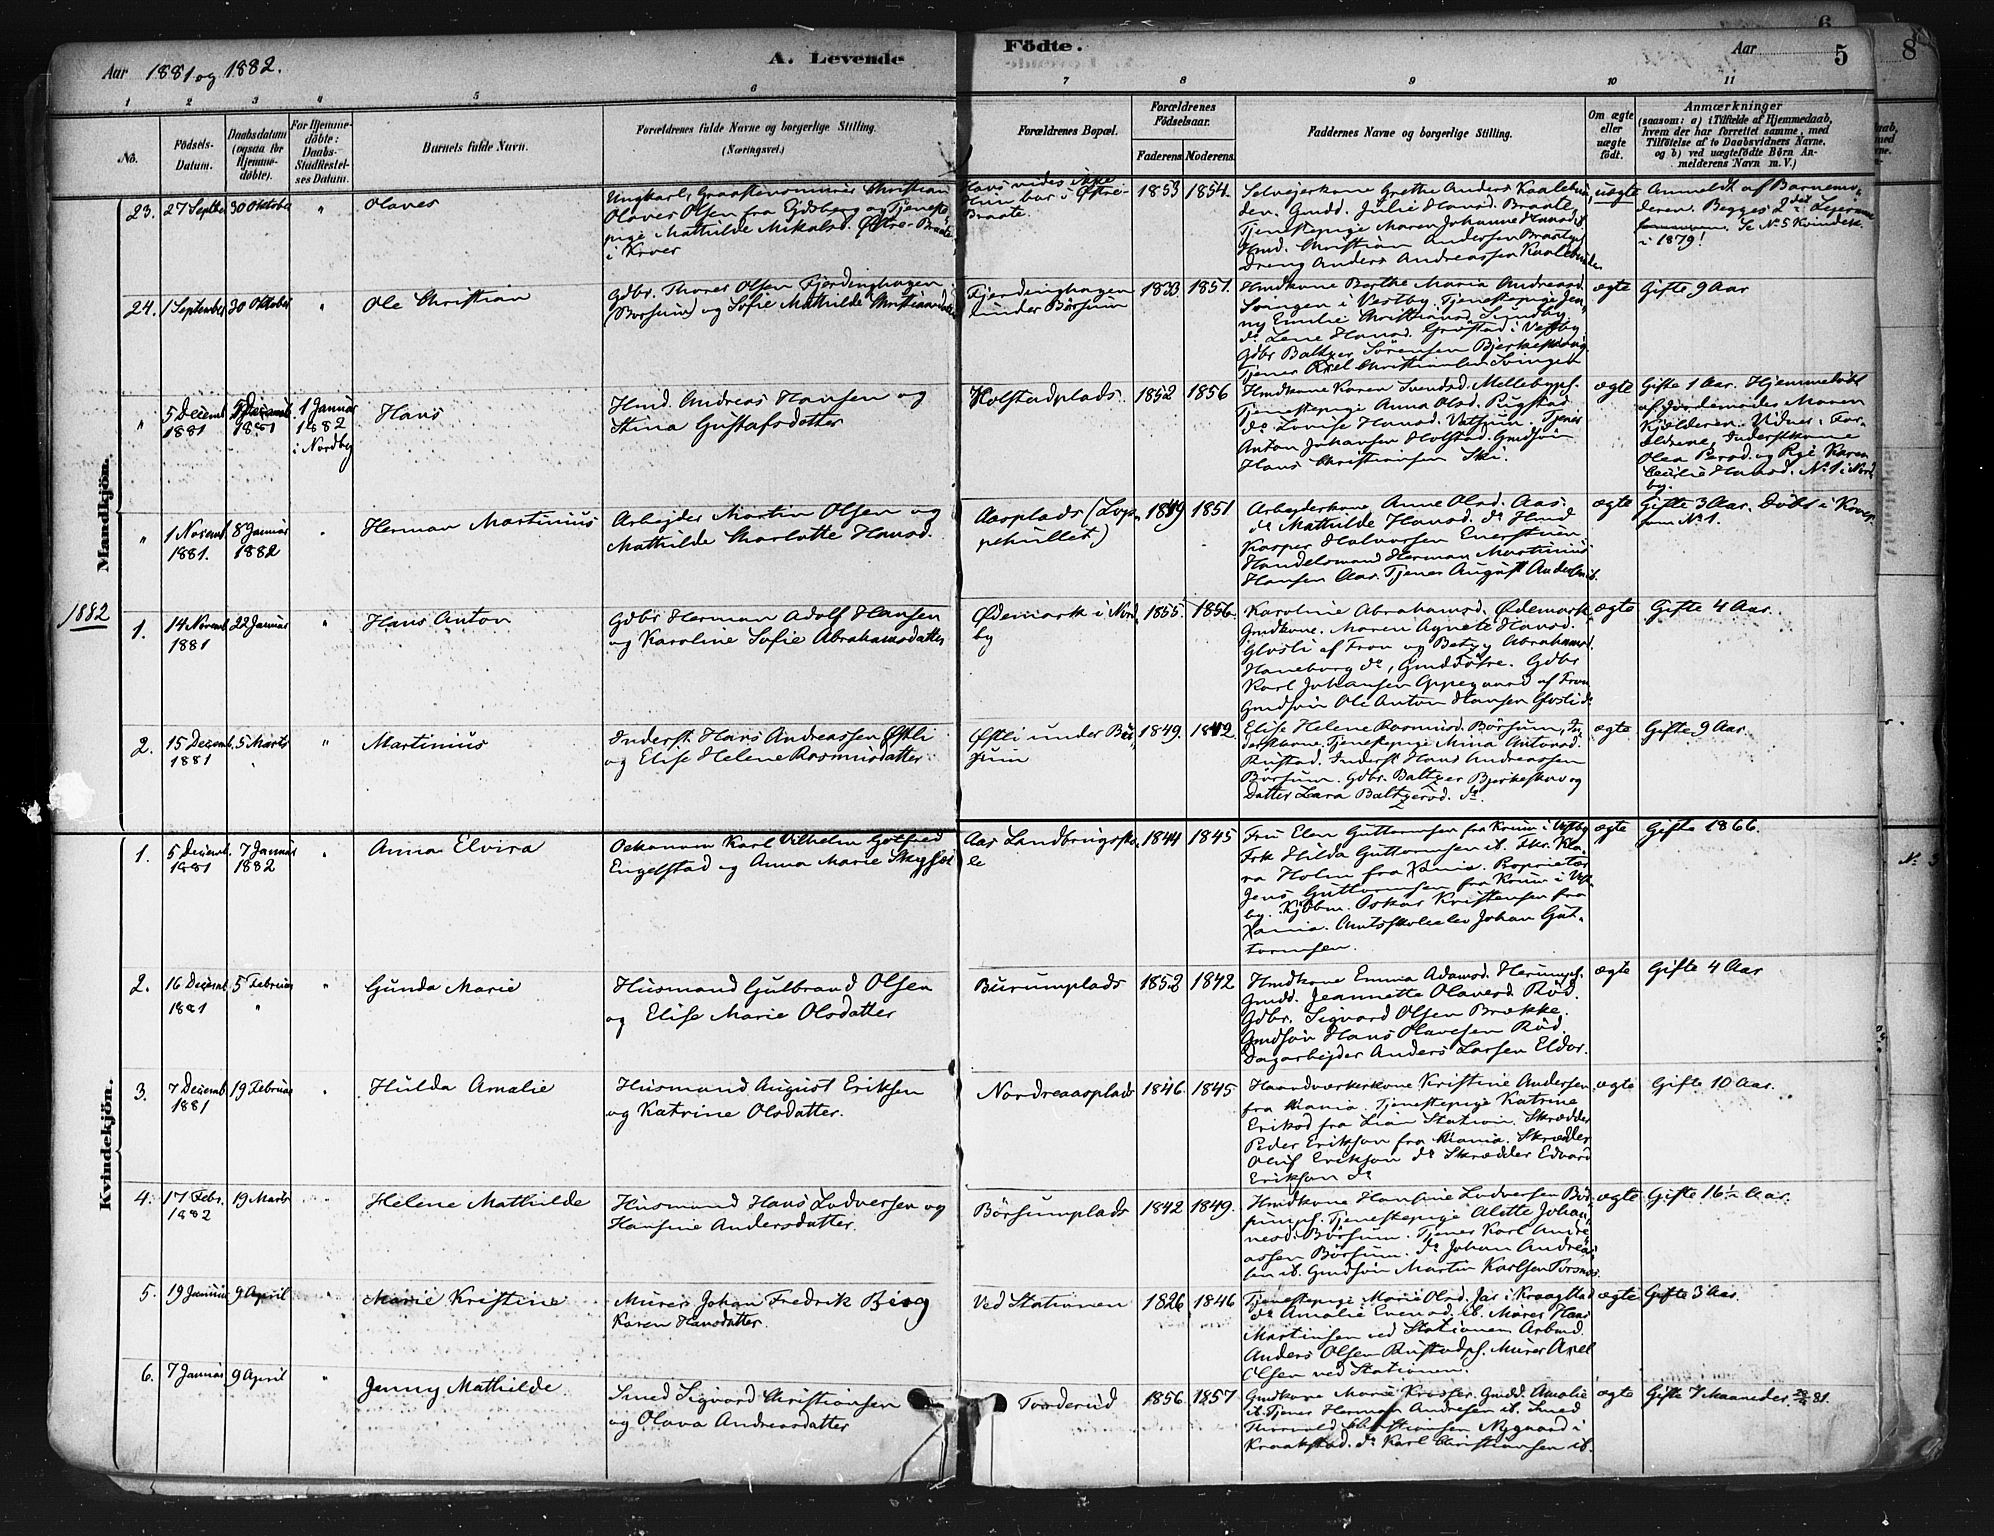 Aar 1881 og 1882.
A. Levende
Födte.
Aar
5
8
6
1 2 3 4 5 6 7 8 9 10 11
No.
Födsels-
Datum.
Daabsdatum
(ogsaa for
Hjemme-
döbte).
For Hjemme-
döbte:
Daabs-
Stadfæstel-
ses Datum.
Barnets fulde Navn.
Forældrenes fulde Navne og borgerlige Stilling.
(Næringsvei.)
Forældrenes Bopæl.
Forældrenes
Födselsaar.
Faderens. Moderens.
Faddernes Navne og borgerlige Stilling.
Om ægte
eller
uægte
födt.
Anmærkninger
(saasom: a) i Tilfælde af Hjemmedaab,
hvem der har forrettet samme, med
Tilföielse af to Daabsvidners Navne,
og b) ved uægtefödte Börn An-
melderens Navn m. V.)
Mandkjön.
23. 27 Septbr 30 Oktober " Olaves
Ungkarl, Christian
Olaves Olsen fra Eidsberg og Tjeneste-
pige Mathilde Mikalsd. Østre Braate
i Kroer
Hans vides ikke
Hun bor i Østre
Braate.
1853 1854.
Selveierkone Grethe Anders Kaalebun-
den. Gmdd. Julie Hansd. Braate
Tjenestepige Maren Johanne Hansd. ib.
Hmd. Christian Andersen Braatepl.
Dreng Anders Andreassen Kaalebunden
uægte
Anmeldt af Barnemo-
deren. Begges 2det Leiermaal
Se No 5 Kvindek.
i 1879!
24. 1 September 30 Oktober " Ole Christian
Gdbr. Thores Olsen Fjerdinghagen
(Børsum) og Sofie Mathilde Christiansdatter
Fjerdinghagen
under Børsum
1833 1851.
Hmdkone Berthe Maria Andreasd.
Svingen i Vestby. Tjenestepige Jen-
ny Emilie Christiansd. Sundby
do Lene Hansd. Grøstad i Vestby.
Gdbr Baltzer Sørensen Bjerkeskoug
Tjener Axel Christiansen Svingen
ægte Gifte 9 Aar
" 5 Decemb. 1881 1881 1 Januar 1882 i Nordby Hans
Hmd. Andreas Hansen og
Stina Gustafsdatter
Holstadplads. 1852 1856
Hmdkone Karen Svendsd. Mellebypl.
Tjenestepige Anna Olsd. Rustad
do Lovise Hansd. Tjener
Anton Johansen Holstad. Gmdsøn
Hans Christiansen Ski.
ægte
Gifte 1 Aar. Hjemmedøbt
af Jordemoder Maren
Kjølderen. Vidner: For-
ældrene, Inderstkone
Olea Persd. og Pige Karen
Cecilie Hansd. No 1 i Nord-
by.
" 1 Novemb. 1881. 8 Januar 1882 Herman Martinius
Arbeider Martin Olsen og
Mathilde Charlotte Hansd.
Aasplads (Lop-
pehullet)
1849 1851
Arbeiderkone Anne Olsd. Aas.
do Mathilde Hansd. do Hmd
Kasper Halvorsen Enerstuen
Handelsmand Herman Martinius
Hansen Aas. Tjener August Andersen ib.
ægte Gifte 3 Aar. Døbt i Kroer
som No 1.
1882
1. 14 Novemb. 1881 22 Januar " Hans Anton
Gdbr Herman Adolf Hansen
og Karoline Sofie Abrahamsdatter
Ødemark i Nord-
by
1855. 1856.
Karoline Abrahamsd. Ødemark
Gmdkone. Maren Agnete Hansd.
Glosli af Fron og Betzy Abrahamsd.
Haneborg do, Gmddøtre. Gdbr
Karl Johansen Oppegaard af Fron
Gmdsøn Ole Anton Hansen Glosli do
ægte Gifte 4 Aar.
2. 15 Decemb. 1881 5 Marts " Martinius
Inderst. Hans Andreassen Østli
og Elise Helene Rasmusdatter
Østli under Bør-
sum
1849. 1842.
Elise Helene Rasmusd. Børsum, In-
derstkone. Tjenestepige Mina Antonsd.
Rustad. Inderst Hans Andreassen
Børsum. Gdbr. Baltzer Bjerkeskov og
Datter Lara Baltzersd. do.
ægte Gifte 9 Aar
Kvindekjön.
1. 5 Decemb. 1881 7 Januar 1882 " Anna Elvira
Oekonom Karl Vilhelm Gotfred
Engelstad og Anna Marie
Aas Landbrugssko-
le
1844 1845
Fru Elen Guttormsen fra Krum i Vestby
Frk Hilda Guttormsen ib. Frk. Kla-
ra Holm fra Xania. Proprietær
Jens Guttormsen fra Krum i Vest-
by. Kjøbm. Oskar Kristensen fra
Xania. Amtsskoleelev Johan Gut-
tormsen.
ægte Gifte 1866.
2. 16 Decemb 1881 5 Februar " " Gunda Marie
Husmand Gulbrand Olsen
og Elise Marie Olsdatter
Burumplads 1852 1842
Hmdkone Emma Adamsd. Herumpl.
Gmdd. Jeannette Olavesd. Rød.
Gdbr. Sigvard Olsen Brække.
Gmdsøn Hans Olavesen Rød.
Dagarbeider Anders Larsen Eldor.
ægte Gifte 4 Aar
3. 7 Decemb 1881 19 Februar " Hulda Amalie
Husmand August Eriksen
og Katrine Olsdatter.
Nordreaasplads 1846. 1845
Haandværkerkone Kristine Andersen
fra Xiania. Tjenestepige Katrine
Eriksd fra Lian Station. Skrædder
Peder Erikson fra Xiania. Skrædder
Oluf Erikson do Skrædder Edvard
Erikson do
ægte Gifte 10 Aar.
4. 17 Febr. 1882 19 Marts " Helene Mathilde
Husmand Hans Ludversen og
Hansine Andersdatter.
Børsumplads 1842 1849.
Hmdkone Hansine Ludversen Bør-
sumpl. Tjenestepige Alette Johan-
nesd. Børsum. Tjener Karl Andre-
assen Børsum. do Johan Andreas-
sen ib. Gmdsøn Martin Karlsen
ægte Gifte 16½ Aar.
5. 19 Januar 9 April " Marie Kristine
Murer Johan Fredrik Berg
Karen Hansdatter.
Ved Stationen 1826 1846
Tjenestepige Marie Olsd. Jar i Kraagstad
do Amalie Evensd. ib. Murer Hans
Martinsen ved Stationen Arbmd.
Anders Olsen Rustadpl. Murer Axel
Olsen ved Stationen.
ægte Gifte 3 Aar.
6. 7 Januar 9 April " Jenny Mathilde
Smed Sigvard Christiansen
og Olava Andreasdatter
Torderud 1856. 1857
Gmdkone Marie Gmdd. Amalie
ib. Tjener Herman Andresen ib. Smed
Thorvald Christiansen Nygaard i
Kraakstad. do Karl Christiansen ib.
ægte Gifte 7 Maaneder 81.